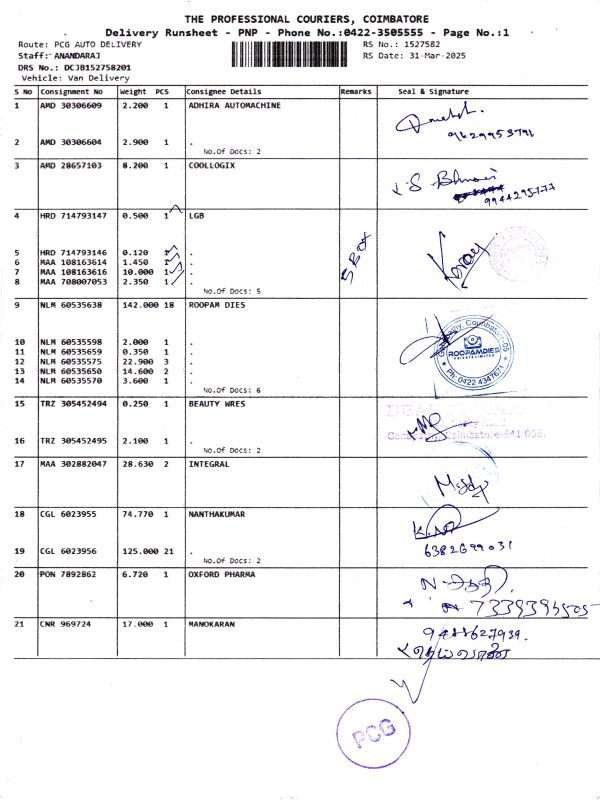 THE PROFESSIONAL COURIERS, COIMBATORE
Delivery Runsheet - PNP - Phone No.:0422-3505555 - Page No.:1
Route: PCG AUTO DELIVERY RS No.: 1527582
Staff: ANANDARAJ RS Date: 31-Mar-2025
DRS No.: DCJB152758201
Vehicle: Van Delivery
S No Consignment No Weight PCS Consignee Details Remarks Seal & Signature
1 AMD 30306609 2.200 1 ADHIRA AUTOMACHINE
9629953791
2 AMD 30306604 2.900 1 .
No.Of Docs: 2
3 AMD 28657103 8.200 1 COOLOGIX
9944295777
4 HRD 714793147 0.500 1 LGB
5 HRD 714793146 0.120 1 .
6 MAA 108163614 1.450 1 .
7 MAA 108163616 10.000 1 .
8 MAA 708007053 2.350 1 .
No.Of Docs: 5
9 NLM 60535638 142.000 18 ROOPAM DIES
ROOPAMDIES
PRIVATE LIMITED
Ph: 0422 4347671
10 NLM 60535598 2.000 1 .
11 NLM 60535659 0.350 1 .
12 NLM 60535575 22.900 3 .
13 NLM 60535650 14.600 2 .
14 NLM 60535570 3.600 1 .
No.Of Docs: 6
15 TRZ 305452494 0.250 1 BEAUTY WRES
Coimbatore-641 006.
16 TRZ 305452495 2.100 1 .
No.Of Docs: 2
17 MAA 302882047 28.630 2 INTEGRAL
18 CGL 6023955 74.770 1 NANTHAKUMAR
6382699031
19 CGL 6023956 125.000 21 .
No.Of Docs: 2
20 PON 7892862 6.720 1 OXFORD PHARMA
21 CNR 969724 17.000 1 MANOKARAN
PCG